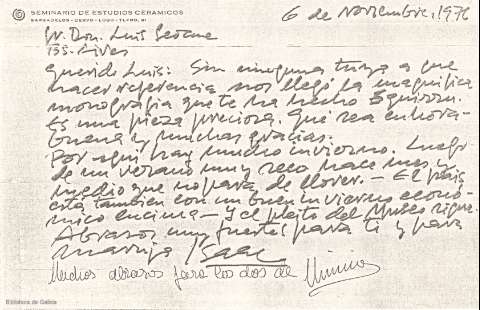 SEMINARIO DE ESTUDIOS CERAMICOS
SARGADELOS - CERVO - LUGO - TLFNO. 81
6 de Noviembre, 1976
Sr. Don. Luis Seoane
Bs-Aires
Querido Luis: Sin ninguna a que
hacer referencia nos llegó la magnífica
monografía que te ha hecho
Es una pieza preciosa. Que sea enhora-
buena y muchas gracias.
Por aquí hay mucho invierno. Luego
de un verano muy seco hace mes y
medio que no para de llover. - El país
está también con un buen invierno econó-
mico encima - Y el pleito del Museo sigue.
Abrazos muy fuertes para ti y para
Maruja Isaac
Muchos abrazos para los dos de Mimina
Biblioteca de Galicia